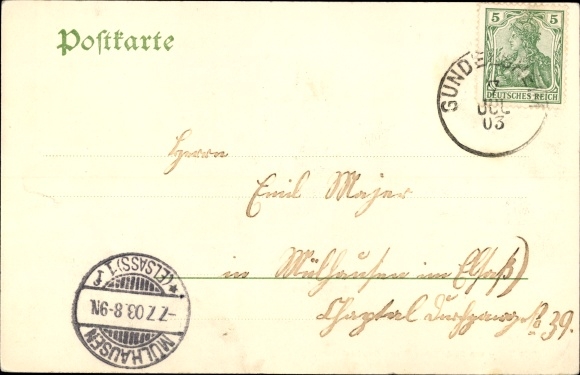 Postkarte
5 5
DEUTSCHES REICH
JUL
03
Herrn
Emil Majer
in Mülhausen im Elsaß)
Chaptal Durchgang No 39.
MÜLHAUSEN
-7.7.03.8-9N.
*(ELSASS)1 f